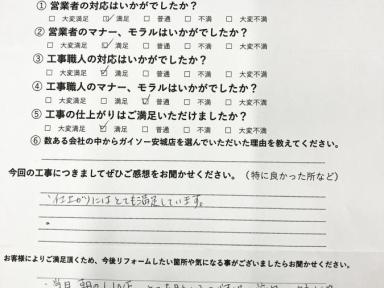 ① 営業者の対応はいかがでしたか？
□ 大変満足 ☑ 満足 □ 普通 □ 不満 □ 大変不満
② 営業者のマナー、モラルはいかがでしたか？
□ 大変満足 ☑ 満足 □ 普通 □ 不満 □ 大変不満
③ 工事職人の対応はいかがでしたか？
□ 大変満足 ☑ 満足 □ 普通 □ 不満 □ 大変不満
④ 工事職人のマナー、モラルはいかがでしたか？
□ 大変満足 □ 満足 ☑ 普通 □ 不満 □ 大変不満
⑤ 工事の仕上がりはご満足いただけましたか？
□ 大変満足 ☑ 満足 □ 普通 □ 不満 □ 大変不満
⑥ 数ある会社の中からガイソー安城店を選んでいただいた理由を教えてください。
今回の工事につきましてぜひご感想をお聞かせください。（特に良かった所など）
・仕上がりにはとても満足しています。
・
お客様によりご満足頂くため、今後リフォームしたい箇所や気になる事がございましたらお聞かせください。
・当日 朝の